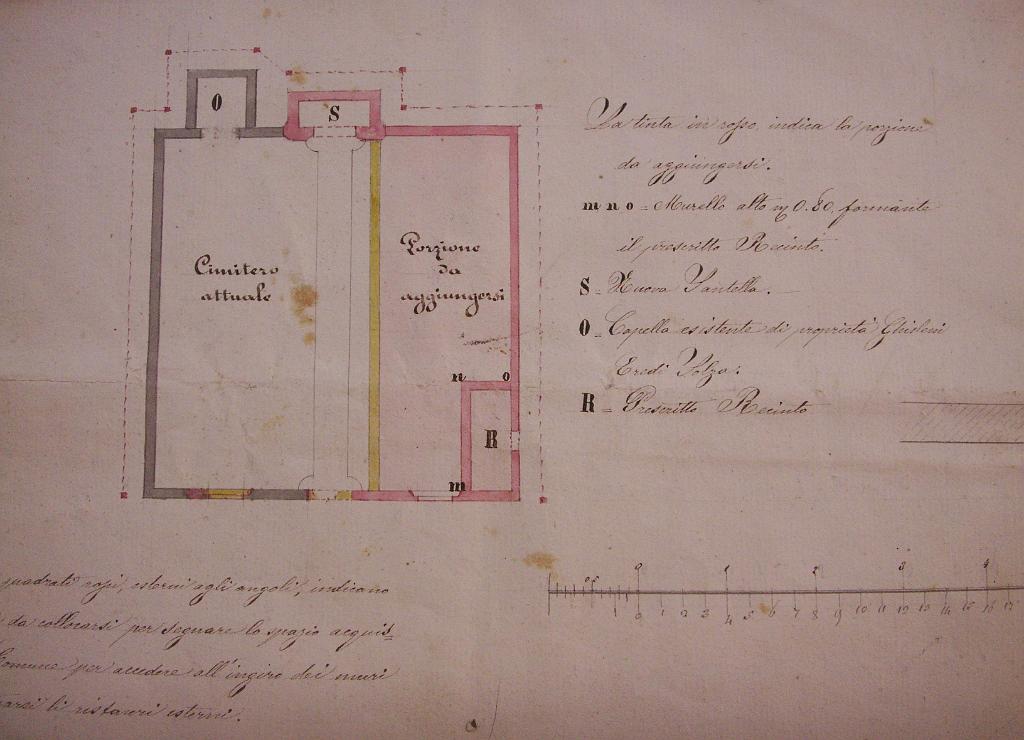 O
S
Cimitero
attuale
Porzione
da
aggiungersi
n o
R
m
La tinta in rosso, indica la porzione
da aggiungersi.
m n o = Murello alto m 0.80 formante
il prescritto Recinto.
S = Nuova Santella.
O = Capella esistente di proprietà Ghisleni
Eredi
R = Prescritto Recinto
quadrati rossi, esterni agli angoli, indicano
da collocarsi per segnare lo spazio acquis=
Comune per accedere all'ingiro dei muri
li ristauri esterni.
0.5 0 1 2 3 4
0 1 2 3 4 5 6 7 8 9 10 11 12 13 14 15 16 17